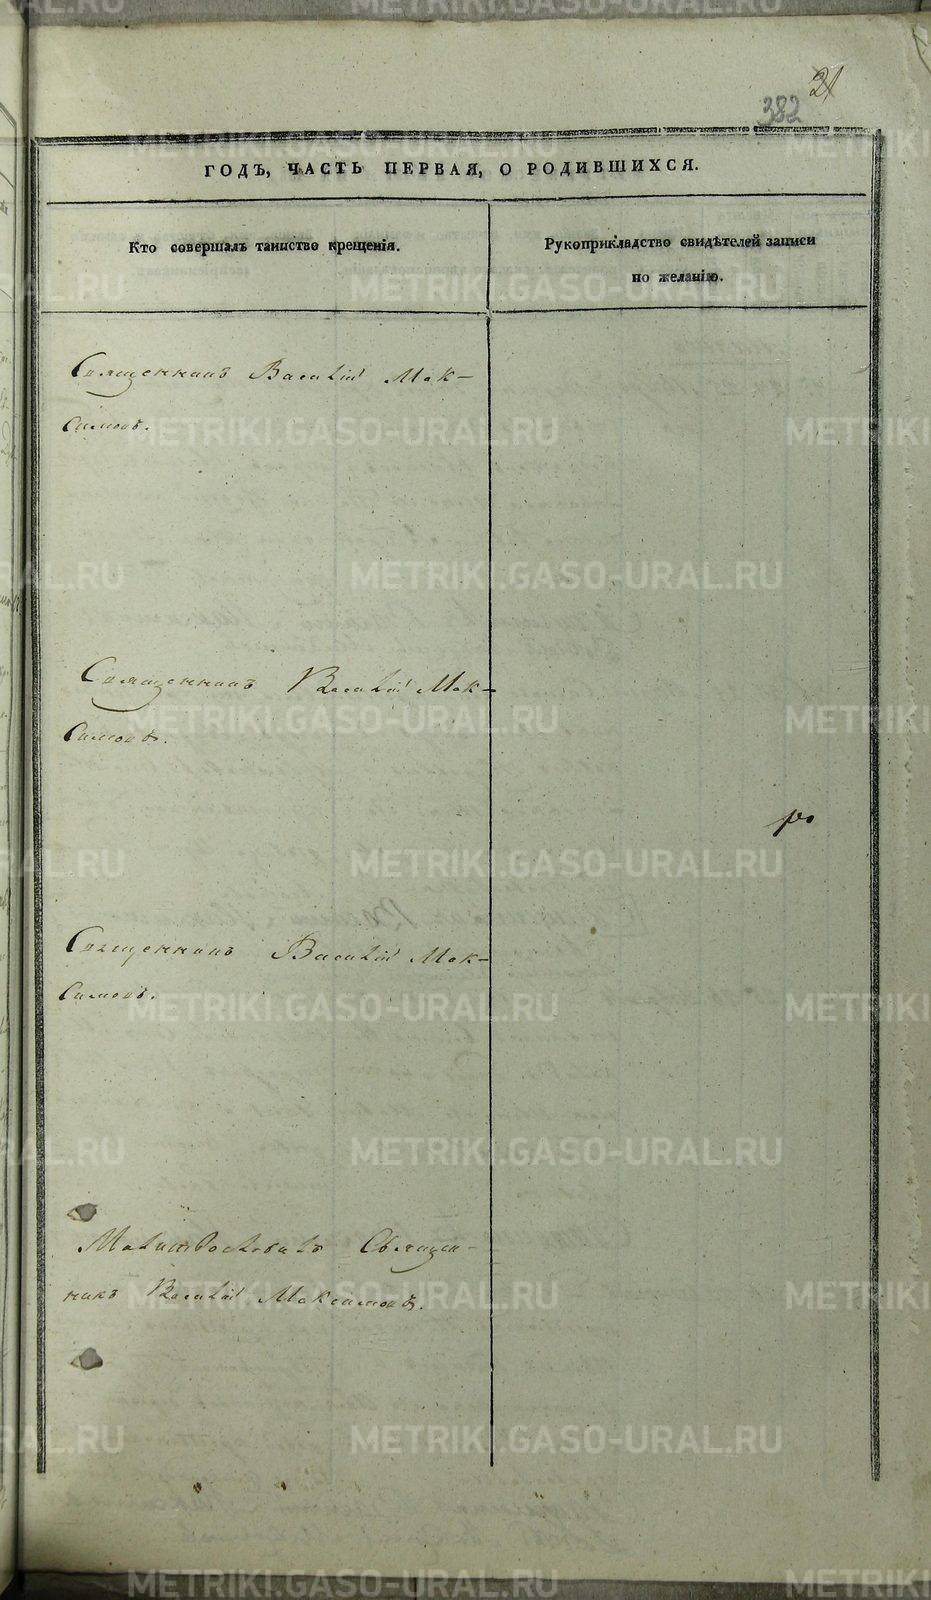 21
382
ГОДЪ, ЧАСТЬ ПЕРВАЯ, О РОДИВШИХСЯ.
Кто совершалъ таинство крещенія.
Рукоприкладство свидѣтелей записи
по желанію.
Священникъ Василій Мак-
симовъ.
Священникъ Василій Мак-
симовъ.
Священникъ Василій Мак-
симовъ.
Молитвословилъ Священ-
никъ Василій Максимовъ.
METRIKI.GASO-URAL.RU